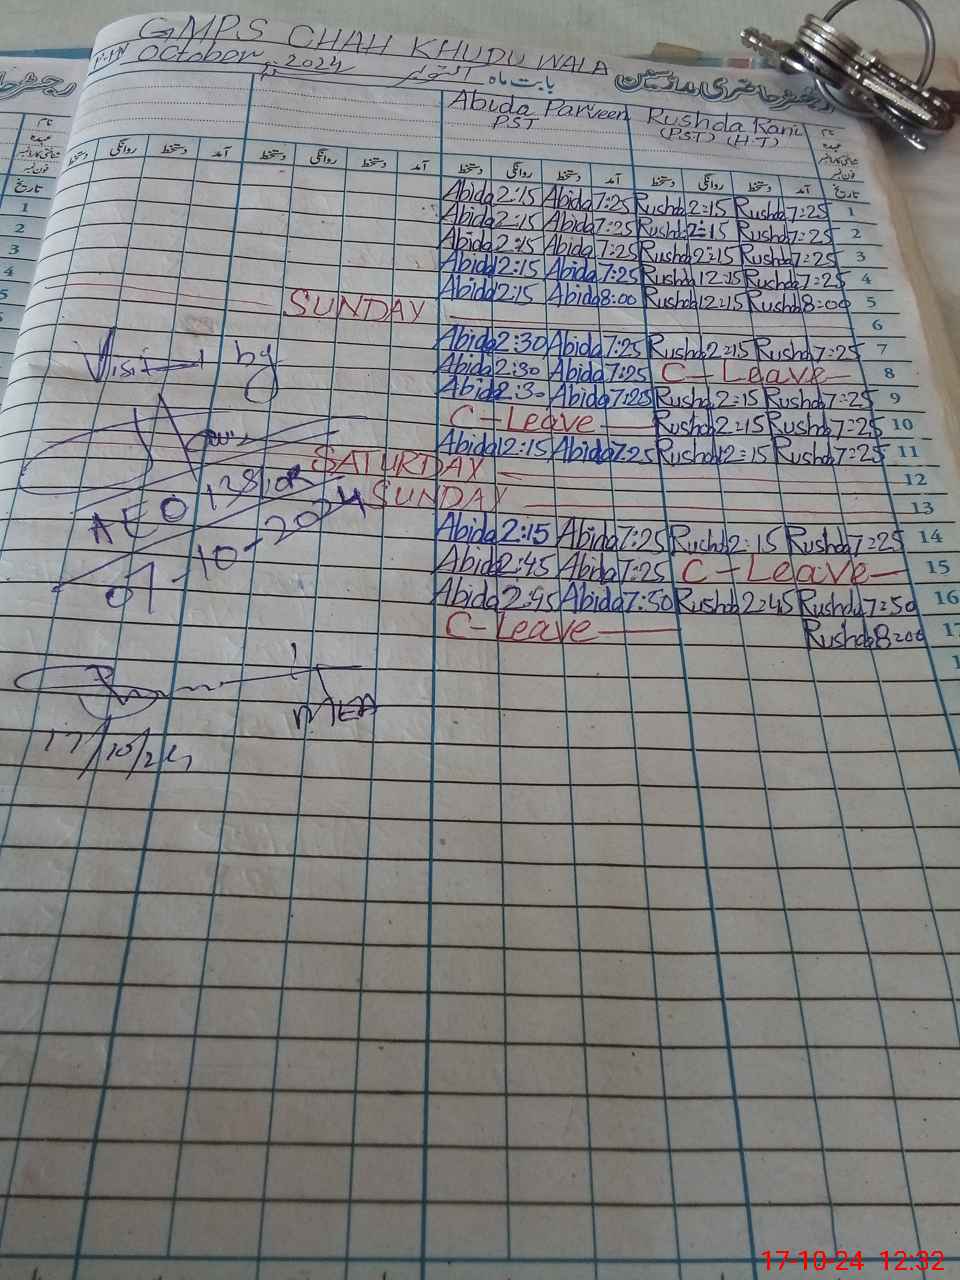 GMPS CHAH KHUDU WALA
October 2024 بابت ماہ اکتوبر رجسٹر حاضری مدرسین
Abida Parveen Rushda Rani نام
PST (PST) (H.T) عہدہ
دستخط روانگی دستخط آمد دستخط روانگی دستخط آمد دستخط روانگی دستخط آمد دستخط روانگی دستخط آمد تاریخ
Abida 2:15 Abida 7:25 Rushda 2:15 Rushda 7:25 1
Abida 2:15 Abida 7:25 Rushda 2:15 Rushda 7:25 2
Abida 2:15 Abida 7:25 Rushda 2:15 Rushda 7:25 3
Abida 2:15 Abida 7:25 Rushda 12:15 Rushda 7:25 4
Abida 2:15 Abida 8:00 Rushda 12:15 Rushda 8:00 5
SUNDAY 6
Abida 2:30 Abida 7:25 Rushda 2:15 Rushda 7:25 7
Abida 2:30 Abida 7:25 C-Leave 8
Abida 2:30 Abida 7:25 Rushda 2:15 Rushda 7:25 9
C-Leave Rushda 2:15 Rushda 7:25 10
Abida 12:15 Abida 7:25 Rushda 12:15 Rushda 7:25 11
SATURDAY 12
SUNDAY 13
Abida 2:15 Abida 7:25 Rushda 2:15 Rushda 7:25 14
Abida 2:45 Abida 7:25 C-Leave 15
Abida 2:45 Abida 7:50 Rushda 2:45 Rushda 7:50 16
C-Leave Rushda 8:00 17
Visited by
AEO
07-10-2024
MEA
17/10/24
17-10-24 12:32